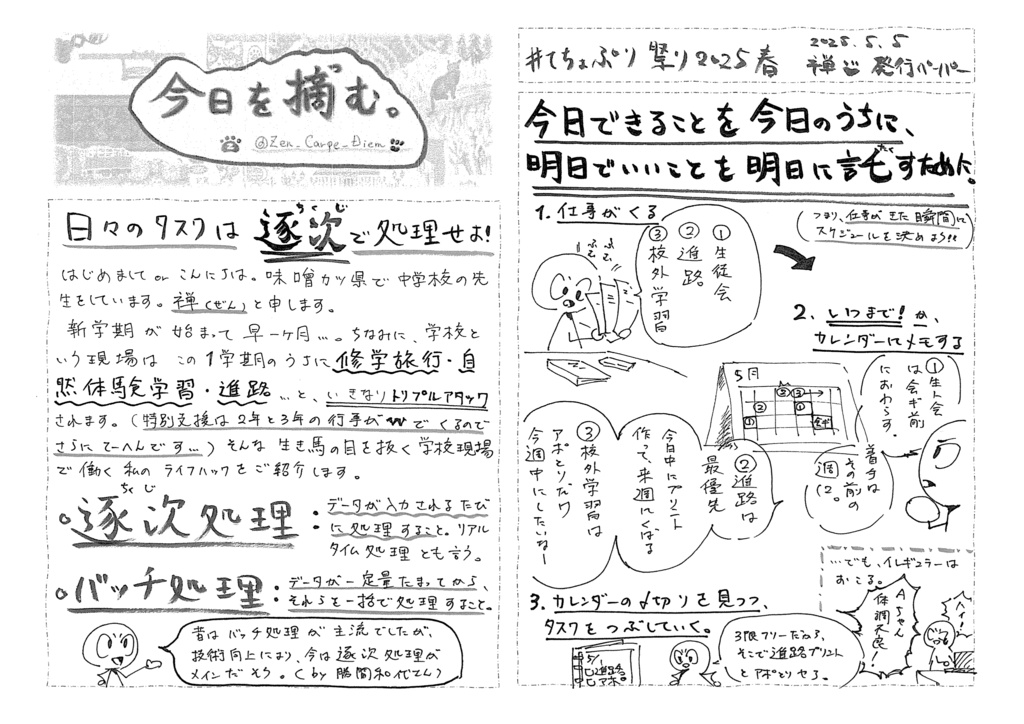 今日を摘む。
@Zen_Carpe_Diem
日々のタスクは逐次で処理せよ!
ちくじ
はじめまして or こんにちは。味噌カツ県で中学校の先
生をしています。禅(ぜん)と申します。
新学期が始まって早一ヶ月…。ちなみに、学校と
いう現場はこの1学期のうちに修学旅行・自
然体験学習・進路…と、いきなりトリプルアタック
されます。(特別支援は2年と3年の行事がWでくるので
さらにてーへんです…)そんな生き馬の目を抜く学校現場
で働く私のライフハックをご紹介します。
ちくじ
逐次処理:
データが入力されるたび
に処理すること。リアル
タイム処理とも言う。
バッチ処理:
データが一定量たまってから、
それらを一括で処理すること。
昔はバッチ処理が主流でしたが、
技術向上により、今は逐次処理が
メインだそう。(by 勝間和代さん)
#てちょぷり祭り2025春
2025.5.5
禅 発行ペーパー
今日できることを今日のうちに、
明日でいいことを明日に託すために!
たく
1. 仕事がくる
①生徒会
②進路
③校外学習
(つまり、仕事がきた瞬間に
スケジュールを決めよう!!)
2. いつまで!か、
カレンダーにメモする
5月
①生徒会
は会ぎ前
におわらす。
着手は
その前の
週に。
②進路は
最優先
今日中にプリント
作って、来週にくばる
③校外学習は
アポとりだけ
今週中にしたいねー
3. カレンダーの〆切りを見つつ、
タスクをつぶしていく。
5/1
進路
アポ
3限フリーだから、
そこで進路プリント
とアポとりやる。
…でも、イレギュラーは
おこる。
Aちゃん
体調不良!
ハイ!